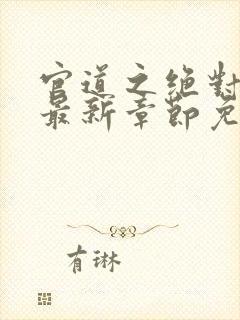 官道之绝对
最新章节免
有琳